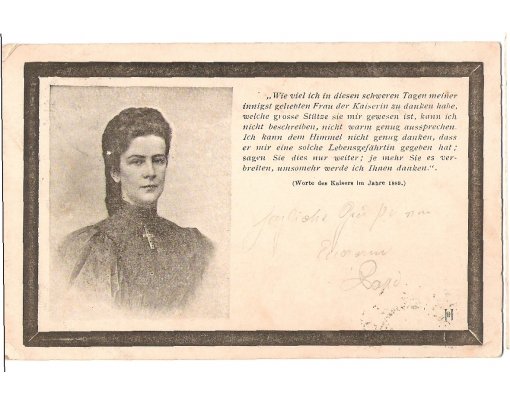 „Wie viel ich in diesen schweren Tagen meiner
innigst geliebten Frau der Kaiserin zu danken habe,
welche grosse Stütze sie mir gewesen ist, kann ich
nicht beschreiben, nicht warm genug aussprechen.
Ich kann dem Himmel nicht genug danken, dass
er mir eine solche Lebensgefährtin gegeben hat;
sagen Sie dies nur weiter; je mehr Sie es ver-
breiten, umsomehr werde ich Ihnen danken.“.
(Worte des Kaisers im Jahre 1889.)